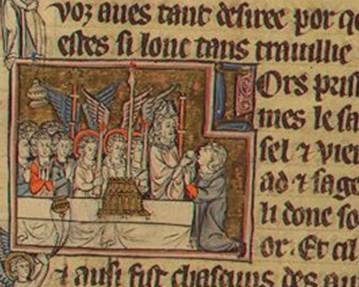 voz aues tant desiree por q
estes si lonc tans trauillie
Ors prist
mes le sa
sel ⁊ vien
ad ⁊ sage
li done so
or. Et cil
⁊ ausi fist chascuns des au